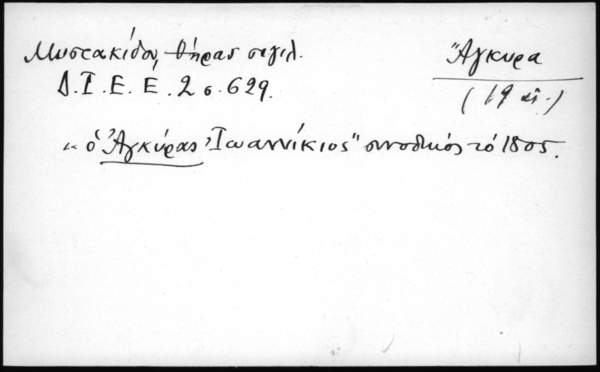 Μυστακίδου, Θήρας σιγιλ.
Δ.Ι.Ε.Ε. 2 σ. 629.
Ἄγκυρα
(19 αἰ.)
"ὁ Ἀγκύρας Ἰωαννίκιος" συνοδικός τό 1805.